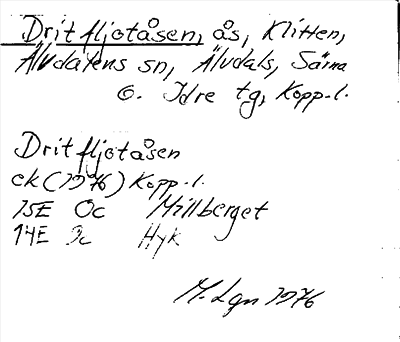 Dritfljotåsen, ås, Klitten,
Älvdalens sn, Älvdals, Särna
o. Idre tg, Kopp.l.
Dritfljotåsen
ek (1976) Kopp.l.
15E 0c Millberget
14E 9c Hyk
M. Lgn 1976